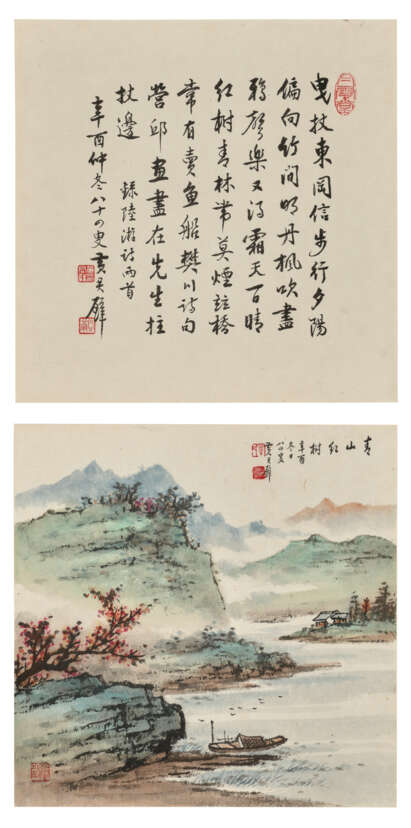 曳杖東岡信步行夕陽
偏向竹間明丹楓吹盡
鴉聲樂又得霜天一日晴
紅樹青林帶莫煙竝橋
常有賣魚船樊川詩句
營邱畫盡在先生拄
杖邊 錄陸游詩兩首
辛酉仲冬八十四叟黃君璧
青山紅樹
辛酉
冬日
八四叟
黃君璧